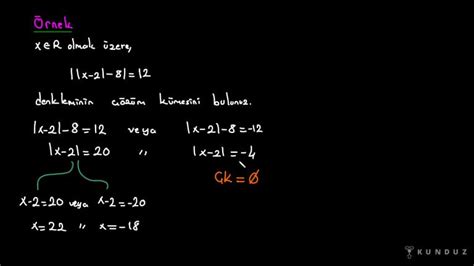 Örnek
x∈R olmak üzere,
||x-2|-8|=12
denkleminin çözüm kümesini bulunuz.
|x-2|-8=12 veya |x-2|-8=-12
|x-2|=20 " |x-2|=-4
ÇK=∅
x-2=20 veya x-2=-20
x=22 " x=-18
KUNDUZ